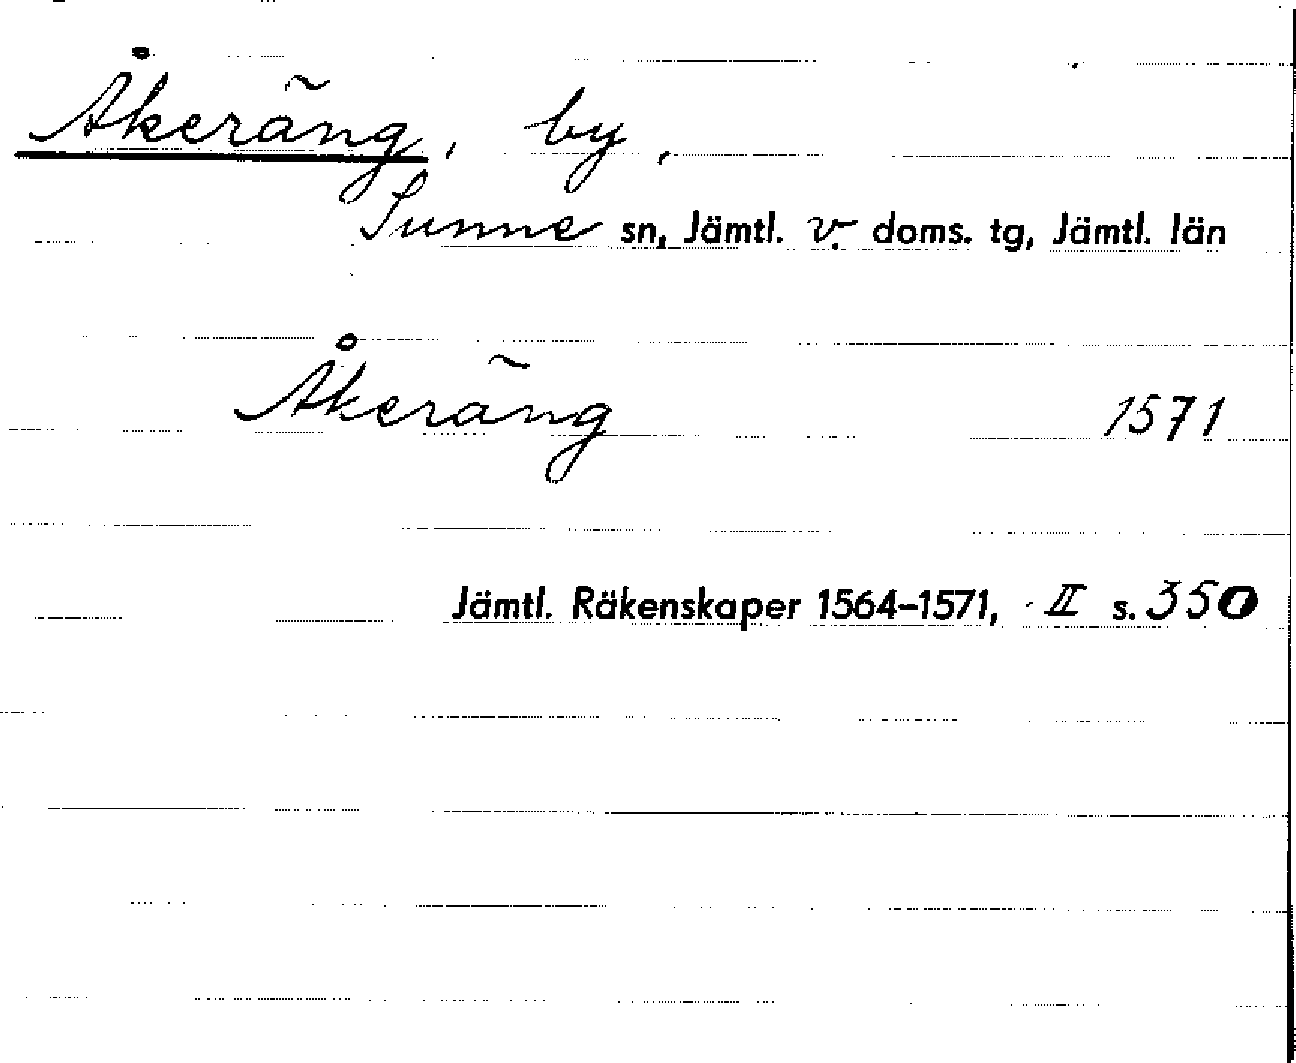 Åkeräng, by,
Sunne sn, Jämtl. v. doms. tg, Jämtl. län
Åkeräng 1571
Jämtl. Räkenskaper 1564-1571, II s. 350